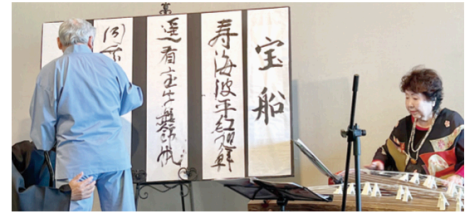 宝船
寿海波平紅旭鮮
遥看宝字 帆
同